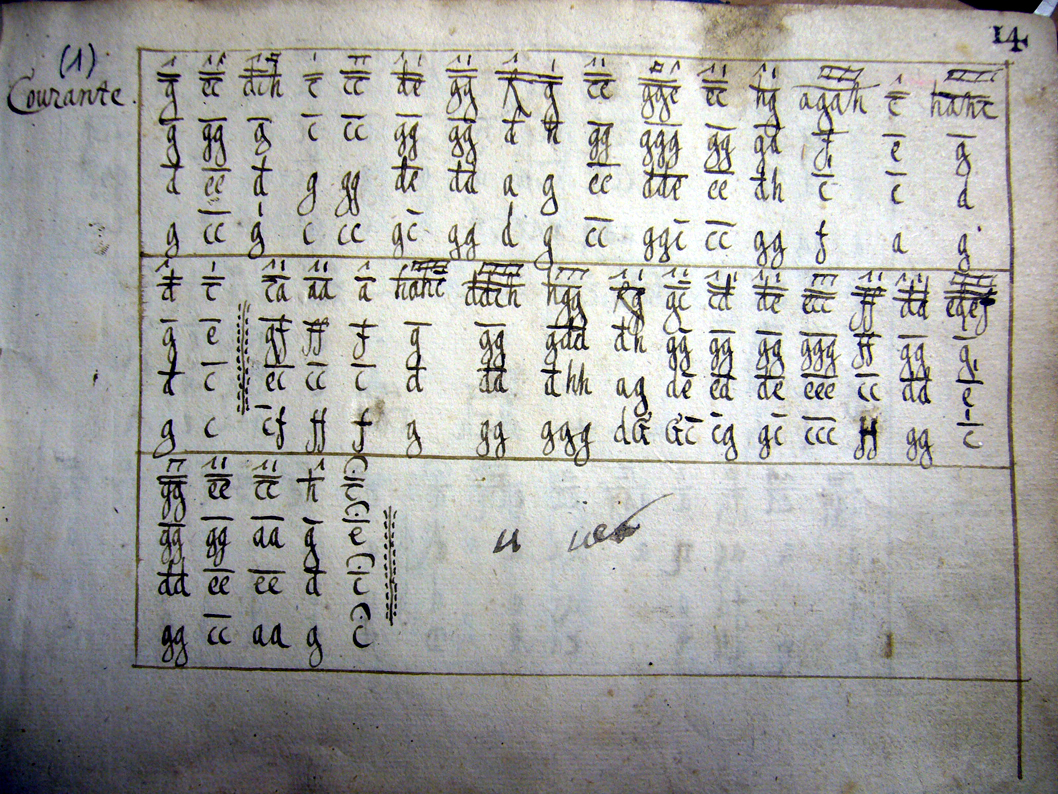 14
(1)
Courante.
g ec dch c cc de gg k g ce ggc ec hg agah c hahc
g gg g c cc gg gg d h gg ggg gg gd f e g
d ee d g gg de dd a g ec dde ee dh c c d
g cc g c cc gc gg d g cc ggc cc gg f a g
d c ca aa a hahc ddch hgg kg gc cd de ecc ff dd edef
g e gf ff f g gg gdd dh gg gg gg ggg ff gg g
d c ec cc c d dd dhh ag de ed de eee cc dd e
g c cf ff f g gg ggg dG Gc cg gc ccc ff gg c
gg ee cc h c
gg gg aa g e
dd ee ee d c
gg cc aa g c